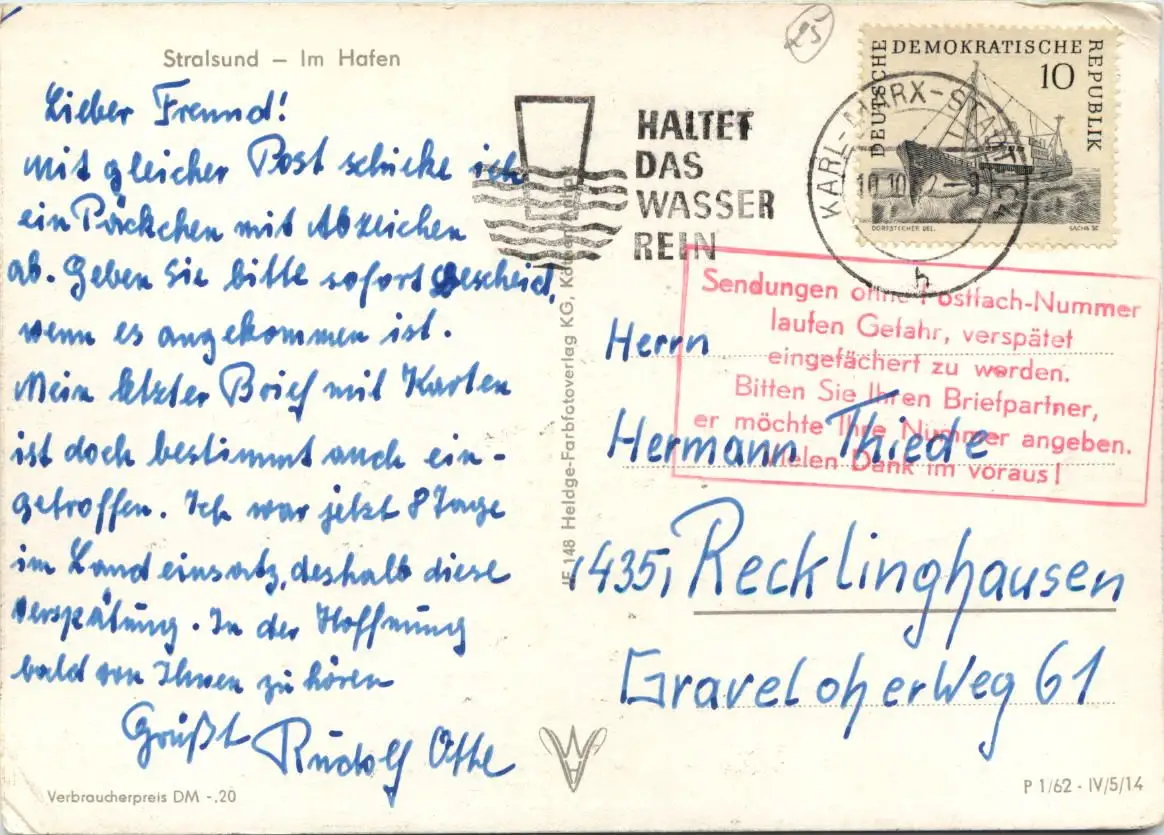 Stralsund – Im Hafen
Lieber Freund!
mit gleicher Post schicke ich
ein Päckchen mit Abzeichen
ab. Geben Sie bitte sofort Bescheid,
wenn es angekommen ist.
Mein letzter Brief mit Karten
ist doch bestimmt auch ein-
getroffen. Ich war jetzt 8 Tage
im Landeinsatz, deshalb diese
Verspätung. In der Hoffnung
bald von Ihnen zu hören
Grüßt Rudolf Otte
Verbraucherpreis DM -.20
JE 148 Heldge-Farbfotoverlag KG,
25
HALTET
DAS
WASSER
REIN
DEUTSCHE DEMOKRATISCHE REPUBLIK
10
DORFSTECHER DEL.
SACHS SC
KARL-MARX-STADT
h
Sendungen ohne Postfach-Nummer
laufen Gefahr, verspätet
eingefächert zu werden.
Bitten Sie Ihren Briefpartner,
er möchte Ihre Nummer angeben.
Vielen Dank im voraus!
Herrn
Hermann Thiede
435, Recklinghausen
Graveloherweg 61
P 1/62 - IV/5/14